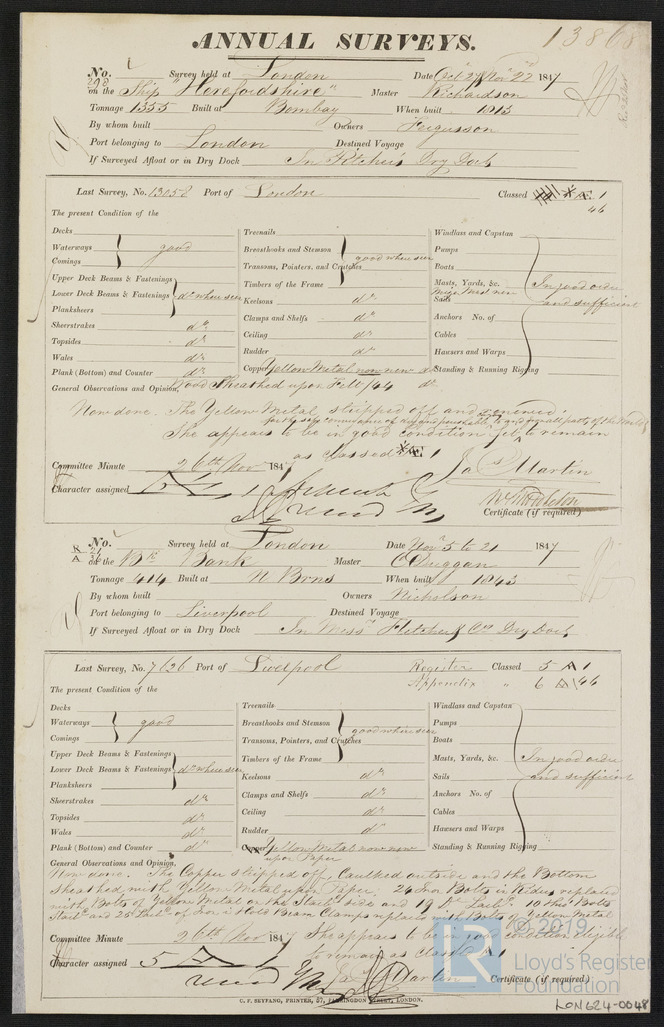 13868
ANNUAL SURVEYS.
No. 298 Survey held at London Date Oct 27 / Nov 22 1847
on the Ship "Herefordshire" Master Richardson
Tonnage 1355 Built at Bombay When built 1813
By whom built Owners Fergusson
Port belonging to London Destined Voyage
If Surveyed Afloat or in Dry Dock In Pitchers Dry Dock
Last Survey, No. 13058 Port of London Classed Æ 1
46
The present Condition of the
Decks
Waterways good
Comings
Upper Deck Beams & Fastenings
Lower Deck Beams & Fastenings do when seen
Planksheers
Sheerstrakes do
Topsides do
Wales do
Plank (Bottom) and Counter do
Treenails
Breasthooks and Stemson good when seen
Transoms, Pointers, and Crutches
Timbers of the Frame
Keelsons do
Clamps and Shelfs do
Ceiling do
Rudder do
Copper Yellow Metal now new
Windlass and Capstan
Pumps
Boats
Masts, Yards, &c. In good order
Sails and sufficient
Anchors No. of
Cables
Hawsers and Warps
Standing & Running Rigging
General Observations and Opinion, Wood Sheathed upon Felt /44 do
Now done. The Yellow Metal stripped off and renewed.
She appears to be in good condition & to remain
as classed Æ 1
Committee Minute 26th Nov 1847
Character assigned Æ 1
Jas Martin
Certificate (if required)
No. Survey held at London Date Novr 5 to 21 1847
on the Bk Bank Master C Duggan
Tonnage 414 Built at N Brns When built 1843
By whom built Owners Nicholson
Port belonging to Liverpool Destined Voyage
If Surveyed Afloat or in Dry Dock In Messrs Fletcher & Cos Dry Dock
Last Survey, No. 7626 Port of Liverpool Register Classed 5 A 1
Appendix " 6 A /46
The present Condition of the
Decks
Waterways good
Comings
Upper Deck Beams & Fastenings
Lower Deck Beams & Fastenings do when seen
Planksheers
Sheerstrakes do
Topsides do
Wales do
Plank (Bottom) and Counter do
Treenails
Breasthooks and Stemson good when seen
Transoms, Pointers, and Crutches
Timbers of the Frame
Keelsons do
Clamps and Shelfs do
Ceiling do
Rudder do
Copper Yellow Metal now new
upon Paper
Windlass and Capstan
Pumps
Boats
Masts, Yards, &c. In good order
Sails and sufficient
Anchors No. of
Cables
Hawsers and Warps
Standing & Running Rigging
General Observations and Opinion,
Now done. The Copper stripped off, Caulked outside and the Bottom
sheathed with Yellow Metal upon Paper. 24 Iron Bolts in Riders replaced
with Bolts of Yellow Metal on the Starbd side and 19 Do Larbd. 10 Thro Bolts
Starbd and 25 Larbd of Iron in Hold Beam Clamps replaced with Bolts of Yellow Metal
Committee Minute 26th Nov 1847 She appears to be in good condition eligible
to remain as classed A 1
Character assigned 5 A 1
Jas Martin
Certificate (if required)
C. F. SEYFANG, PRINTER, 57, FARRINGDON STREET, LONDON.
© 2019
LR
Lloyd's Register
Foundation
LON624-0048